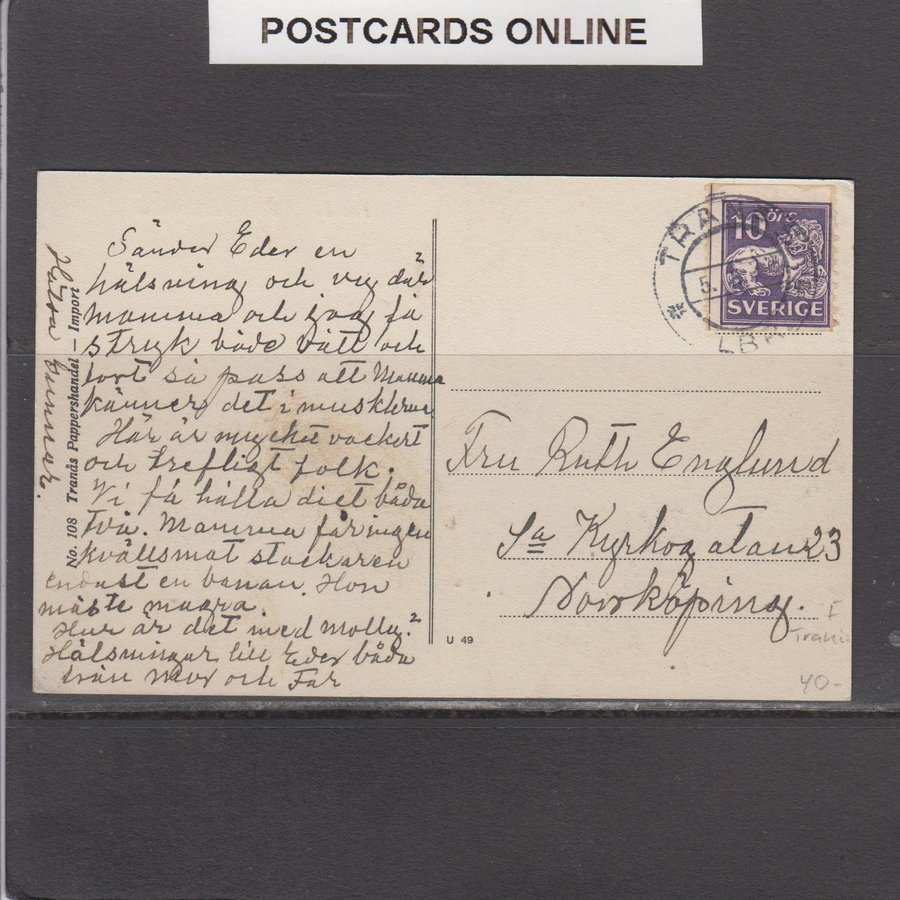 POSTCARDS ONLINE
Sänder Eder en
hälsning och vy, där
mamma och jag få
stryk både vått och
tort så pass att Mamma
känner det i musklerna
Här är mycket vackert
och trefligt folk.
Vi få hålla diet båda
två. Mamma får ingen
kvällsmat stackaren
endast en banan. Hon
måste magra.
Hur är det med Molly?
Hälsningar till Eder båda
från Mor och Far
Hälsa Gunnar.
No. 108 Tranås Pappershandel – Import
U 49
TRAN
5.
LBP
10 ÖRE
SVERIGE
Fru Ruth Englund
Sa Kyrkogatan 23
Norrköping.
F
Tranås
40-